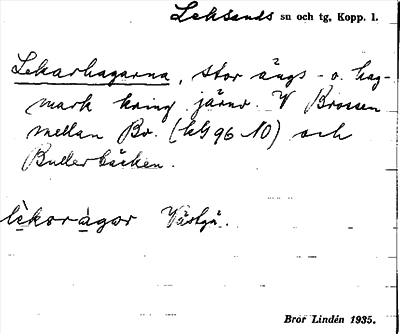 Leksands su och tg, Kopp. l.
Lekarhagarna, stor ängs- o. hag-
mark kring järnv. V Brossen
mellan Bo. (kG 96 NO) och
Bullerbäcken.
lèkoràgar Västgä.
Bror Lindén 1935.